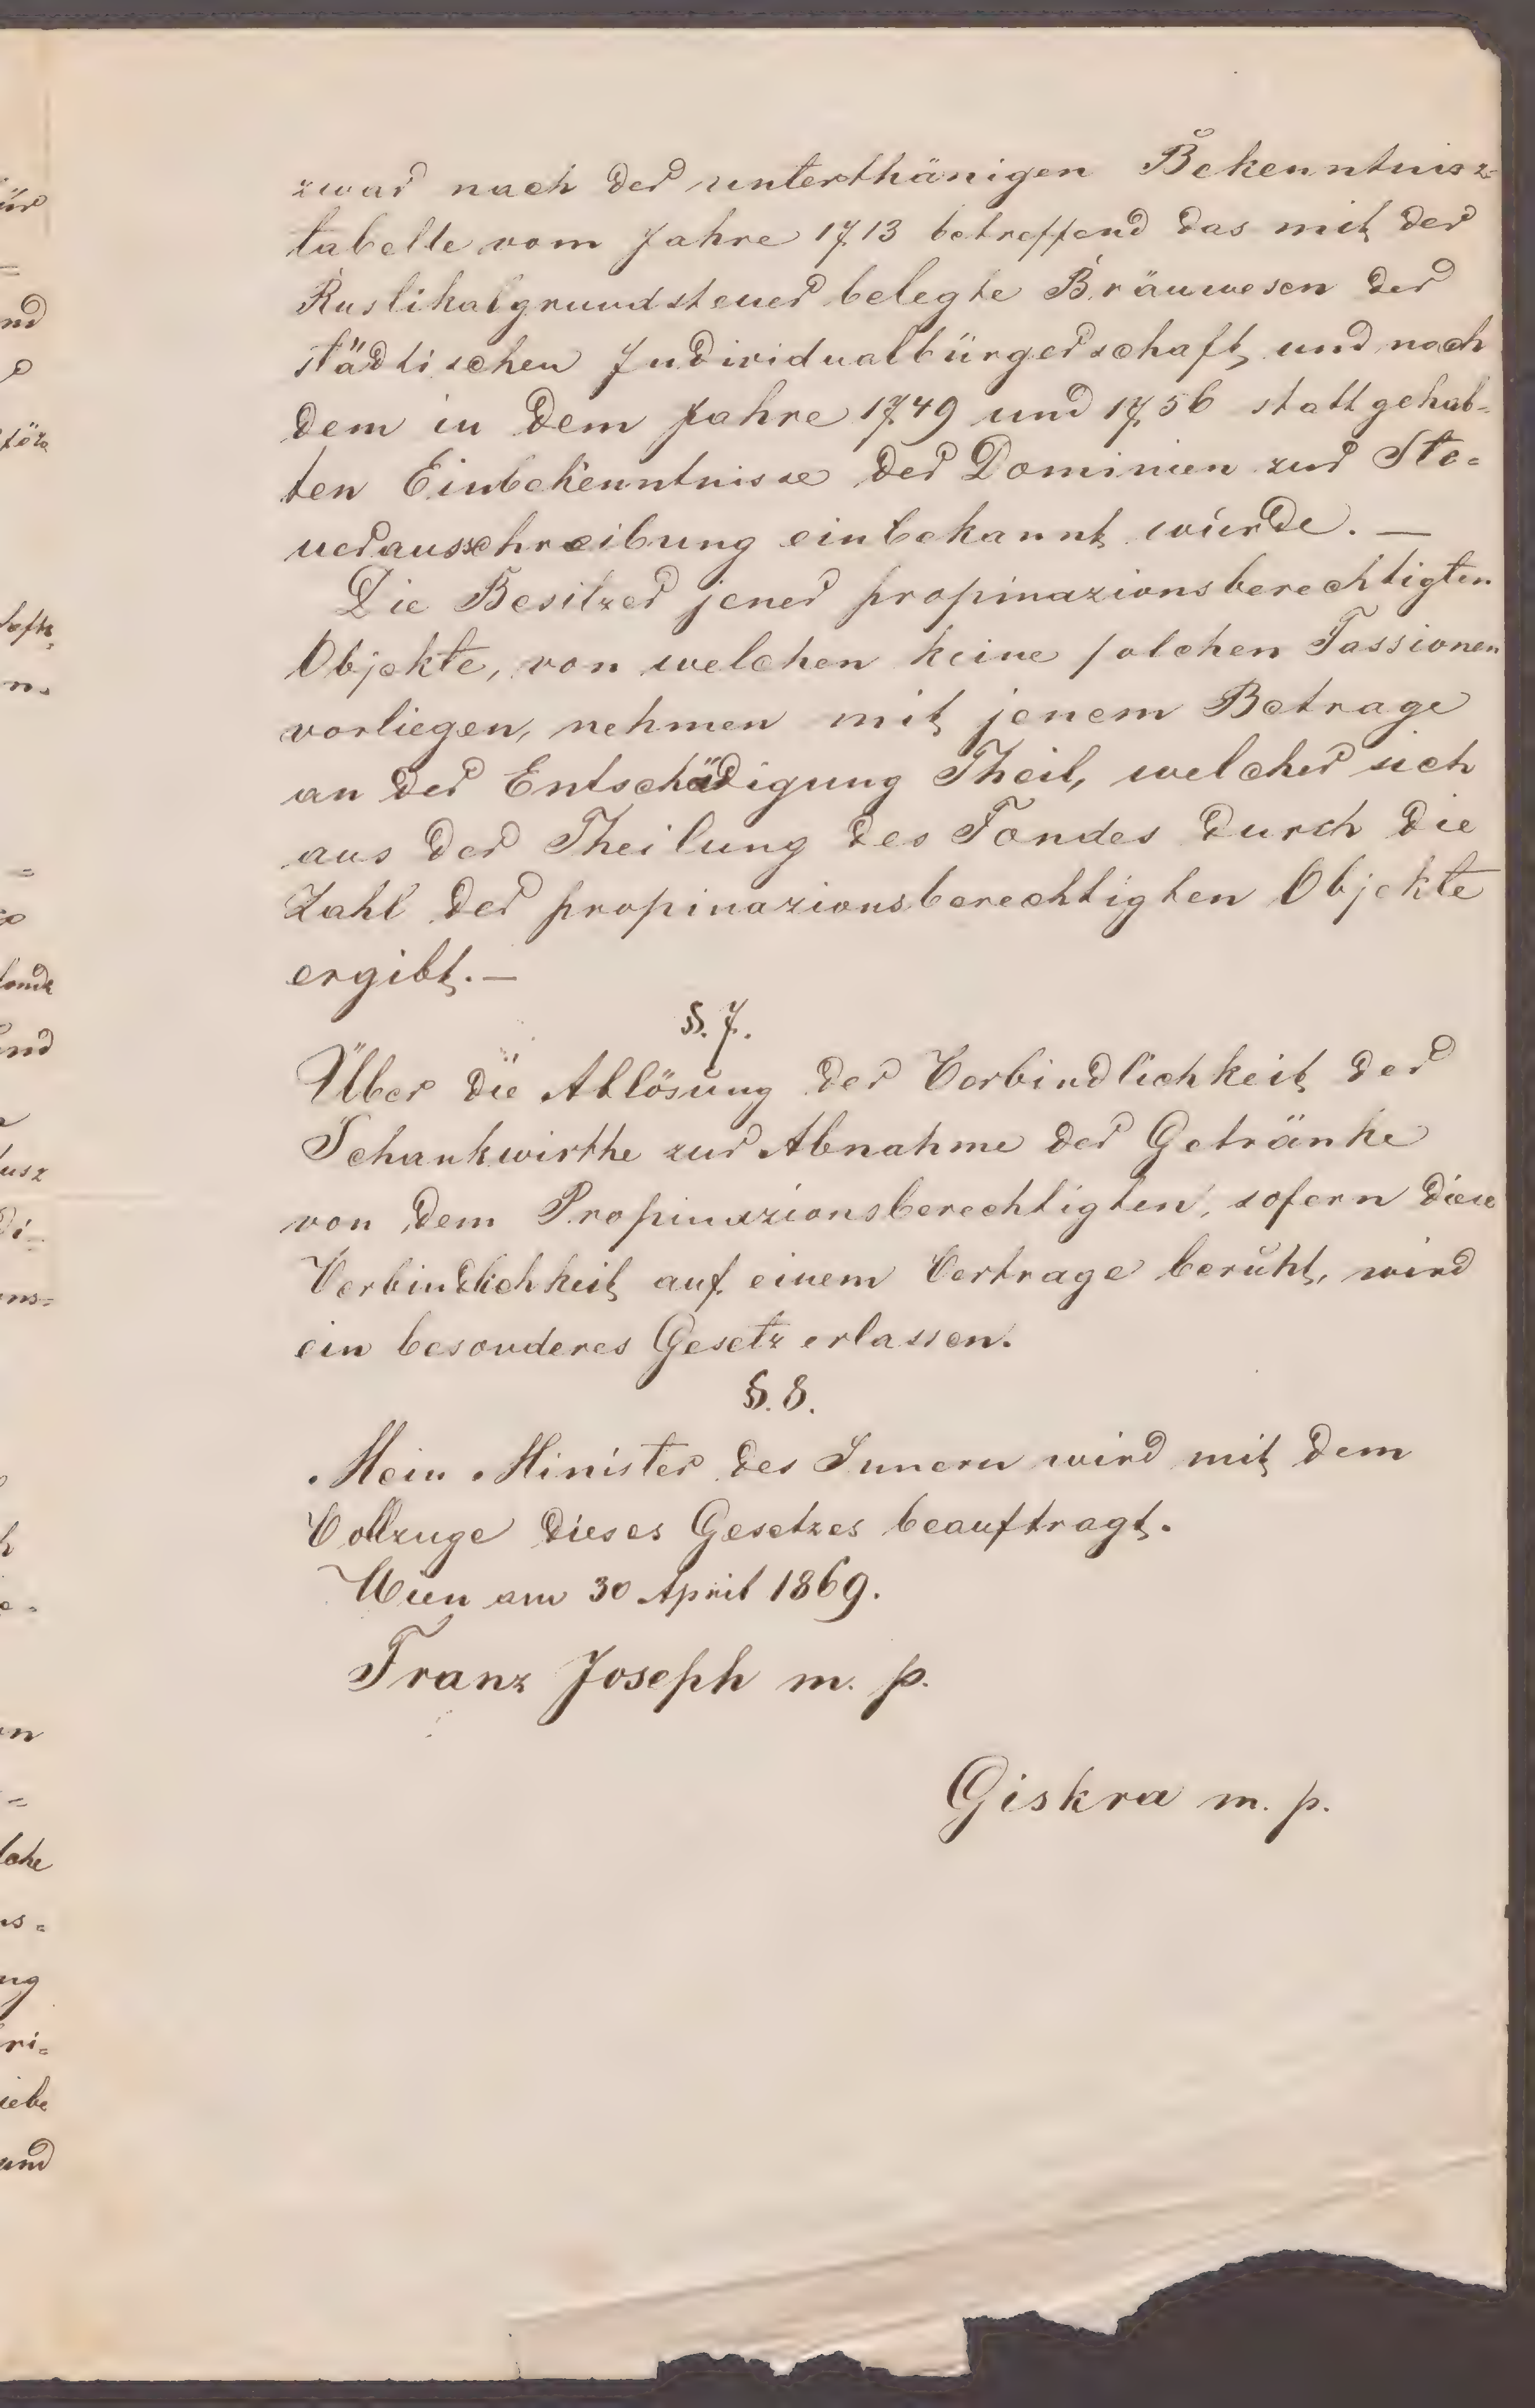 zwar nach der unterthänigen Bekenntnisz=
tabelle vom Jahre 1713 betreffend das mit der
Rustikalgrundsteuer belegte Bräuwesen der
städtischen Individualbürgerschaft, und nach
dem in dem Jahre 1749 und 1756 stattgehab=
ten Einbekenntnisse der Dominien zur Ste=
uerausschreibung einbekannt wurde. —
Die Besitzer jener propinazionsberechtigten
Objekte, von welchen keine solchen Fassionen
vorliegen, nehmen mit jenem Betrage
an der Entschädigung Theil, welcher sich
aus der Theilung des Fondes durch die
Zahl der propinazionsberechtigten Objekte
ergibt. —
§. 7.
Über die Ablösung der Verbindlichkeit der
Schankwirthe zur Abnahme der Getränke
von dem Propinazionsberechtigten, sofern diese
Verbindlichkeit auf einem Vertrage beruht, wird
ein besonderes Gesetz erlassen.
§. 8.
Mein Minister des Innern wird mit dem
Vollzuge dieses Gesetzes beauftragt.
Wien am 30 April 1869.
Franz Joseph m. p.
Giskra m. p.